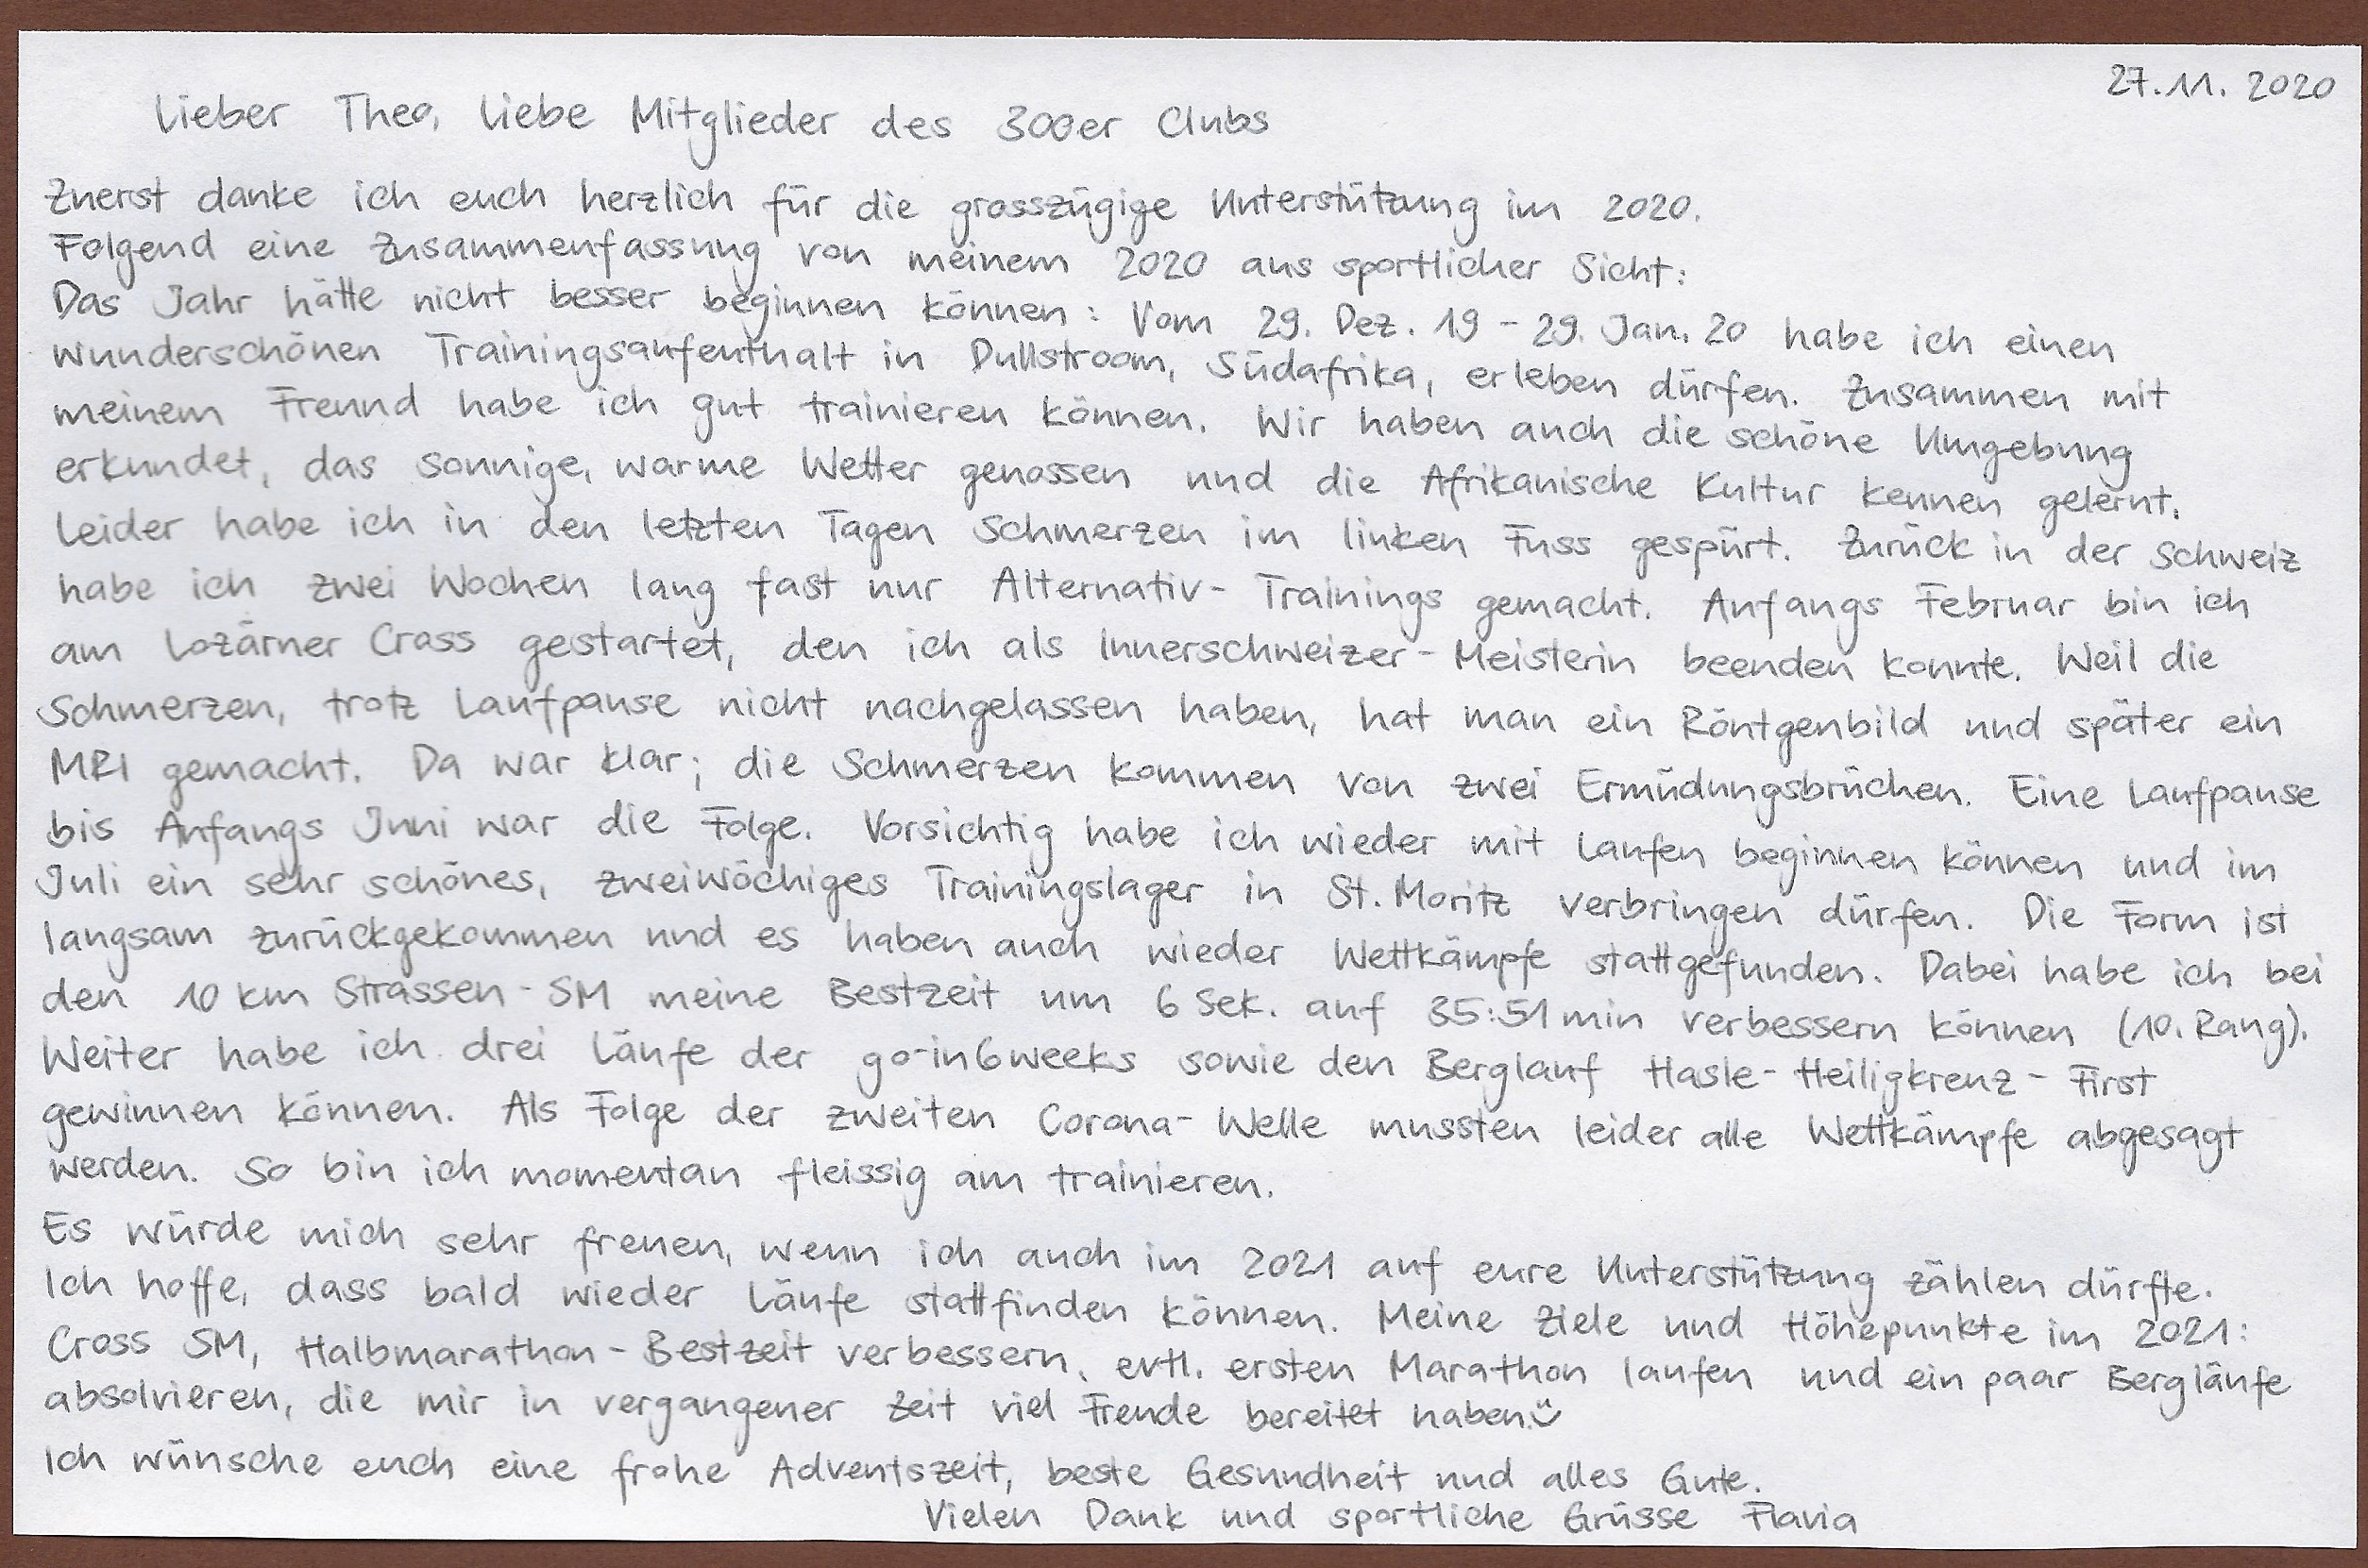 27.11.2020
Lieber Theo, liebe Mitglieder des 300er Clubs
Zuerst danke ich euch herzlich für die grosszügige Unterstützung im 2020.
Folgend eine Zusammenfassung von meinem 2020 aus sportlicher Sicht:
Das Jahr hätte nicht besser beginnen können: Vom 29. Dez. 19 - 29. Jan. 20 habe ich einen
wunderschönen Trainingsaufenthalt in Dullstroom, Südafrika, erleben dürfen. Zusammen mit
meinem Freund habe ich gut trainieren können. Wir haben auch die schöne Umgebung
erkundet, das sonnige, warme Wetter genossen und die Afrikanische Kultur kennen gelernt.
Leider habe ich in den letzten Tagen Schmerzen im linken Fuss gespürt. Zurück in der Schweiz
habe ich zwei Wochen lang fast nur Alternativ-Trainings gemacht. Anfangs Februar bin ich
am Lozärner Cross gestartet, den ich als Innerschweizer-Meisterin beenden konnte. Weil die
Schmerzen, trotz Laufpause nicht nachgelassen haben, hat man ein Röntgenbild und später ein
MRI gemacht. Da war klar; die Schmerzen kommen von zwei Ermüdungsbrüchen. Eine Laufpause
bis Anfangs Juni war die Folge. Vorsichtig habe ich wieder mit Laufen beginnen können und im
Juli ein sehr schönes, zweiwöchiges Trainingslager in St. Moritz verbringen dürfen. Die Form ist
langsam zurückgekommen und es haben auch wieder Wettkämpfe stattgefunden. Dabei habe ich bei
den 10 km Strassen-SM meine Bestzeit um 6 Sek. auf 35:51 min verbessern können (10. Rang).
Weiter habe ich drei Läufe der go-in6weeks sowie den Berglauf Hasle-Heiligkreuz-First
gewinnen können. Als Folge der zweiten Corona-Welle mussten leider alle Wettkämpfe abgesagt
werden. So bin ich momentan fleissig am trainieren.
Es würde mich sehr freuen, wenn ich auch im 2021 auf eure Unterstützung zählen dürfte.
Ich hoffe, dass bald wieder Läufe stattfinden können. Meine Ziele und Höhepunkte im 2021:
Cross SM, Halbmarathon-Bestzeit verbessern, evtl. ersten Marathon laufen und ein paar Bergläufe
absolvieren, die mir in vergangener Zeit viel Freude bereitet haben.☺
Ich wünsche euch eine frohe Adventszeit, beste Gesundheit und alles Gute.
Vielen Dank und sportliche Grüsse Flavia